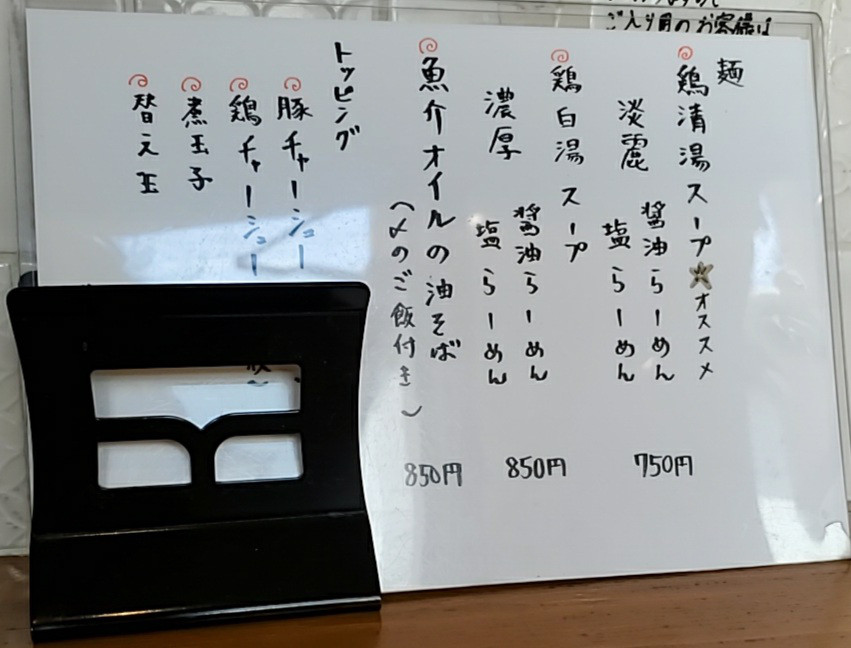 ご入り用のお客様は
麺
鶏清湯スープ★オススメ
淡麗
醤油らーめん
塩らーめん
750円
鶏白湯スープ
濃厚
醤油らーめん
塩らーめん
850円
魚介オイルの油そば
(〆のご飯付き)
850円
トッピング
豚チャーシュー
鶏チャーシュー
煮玉子
替え玉